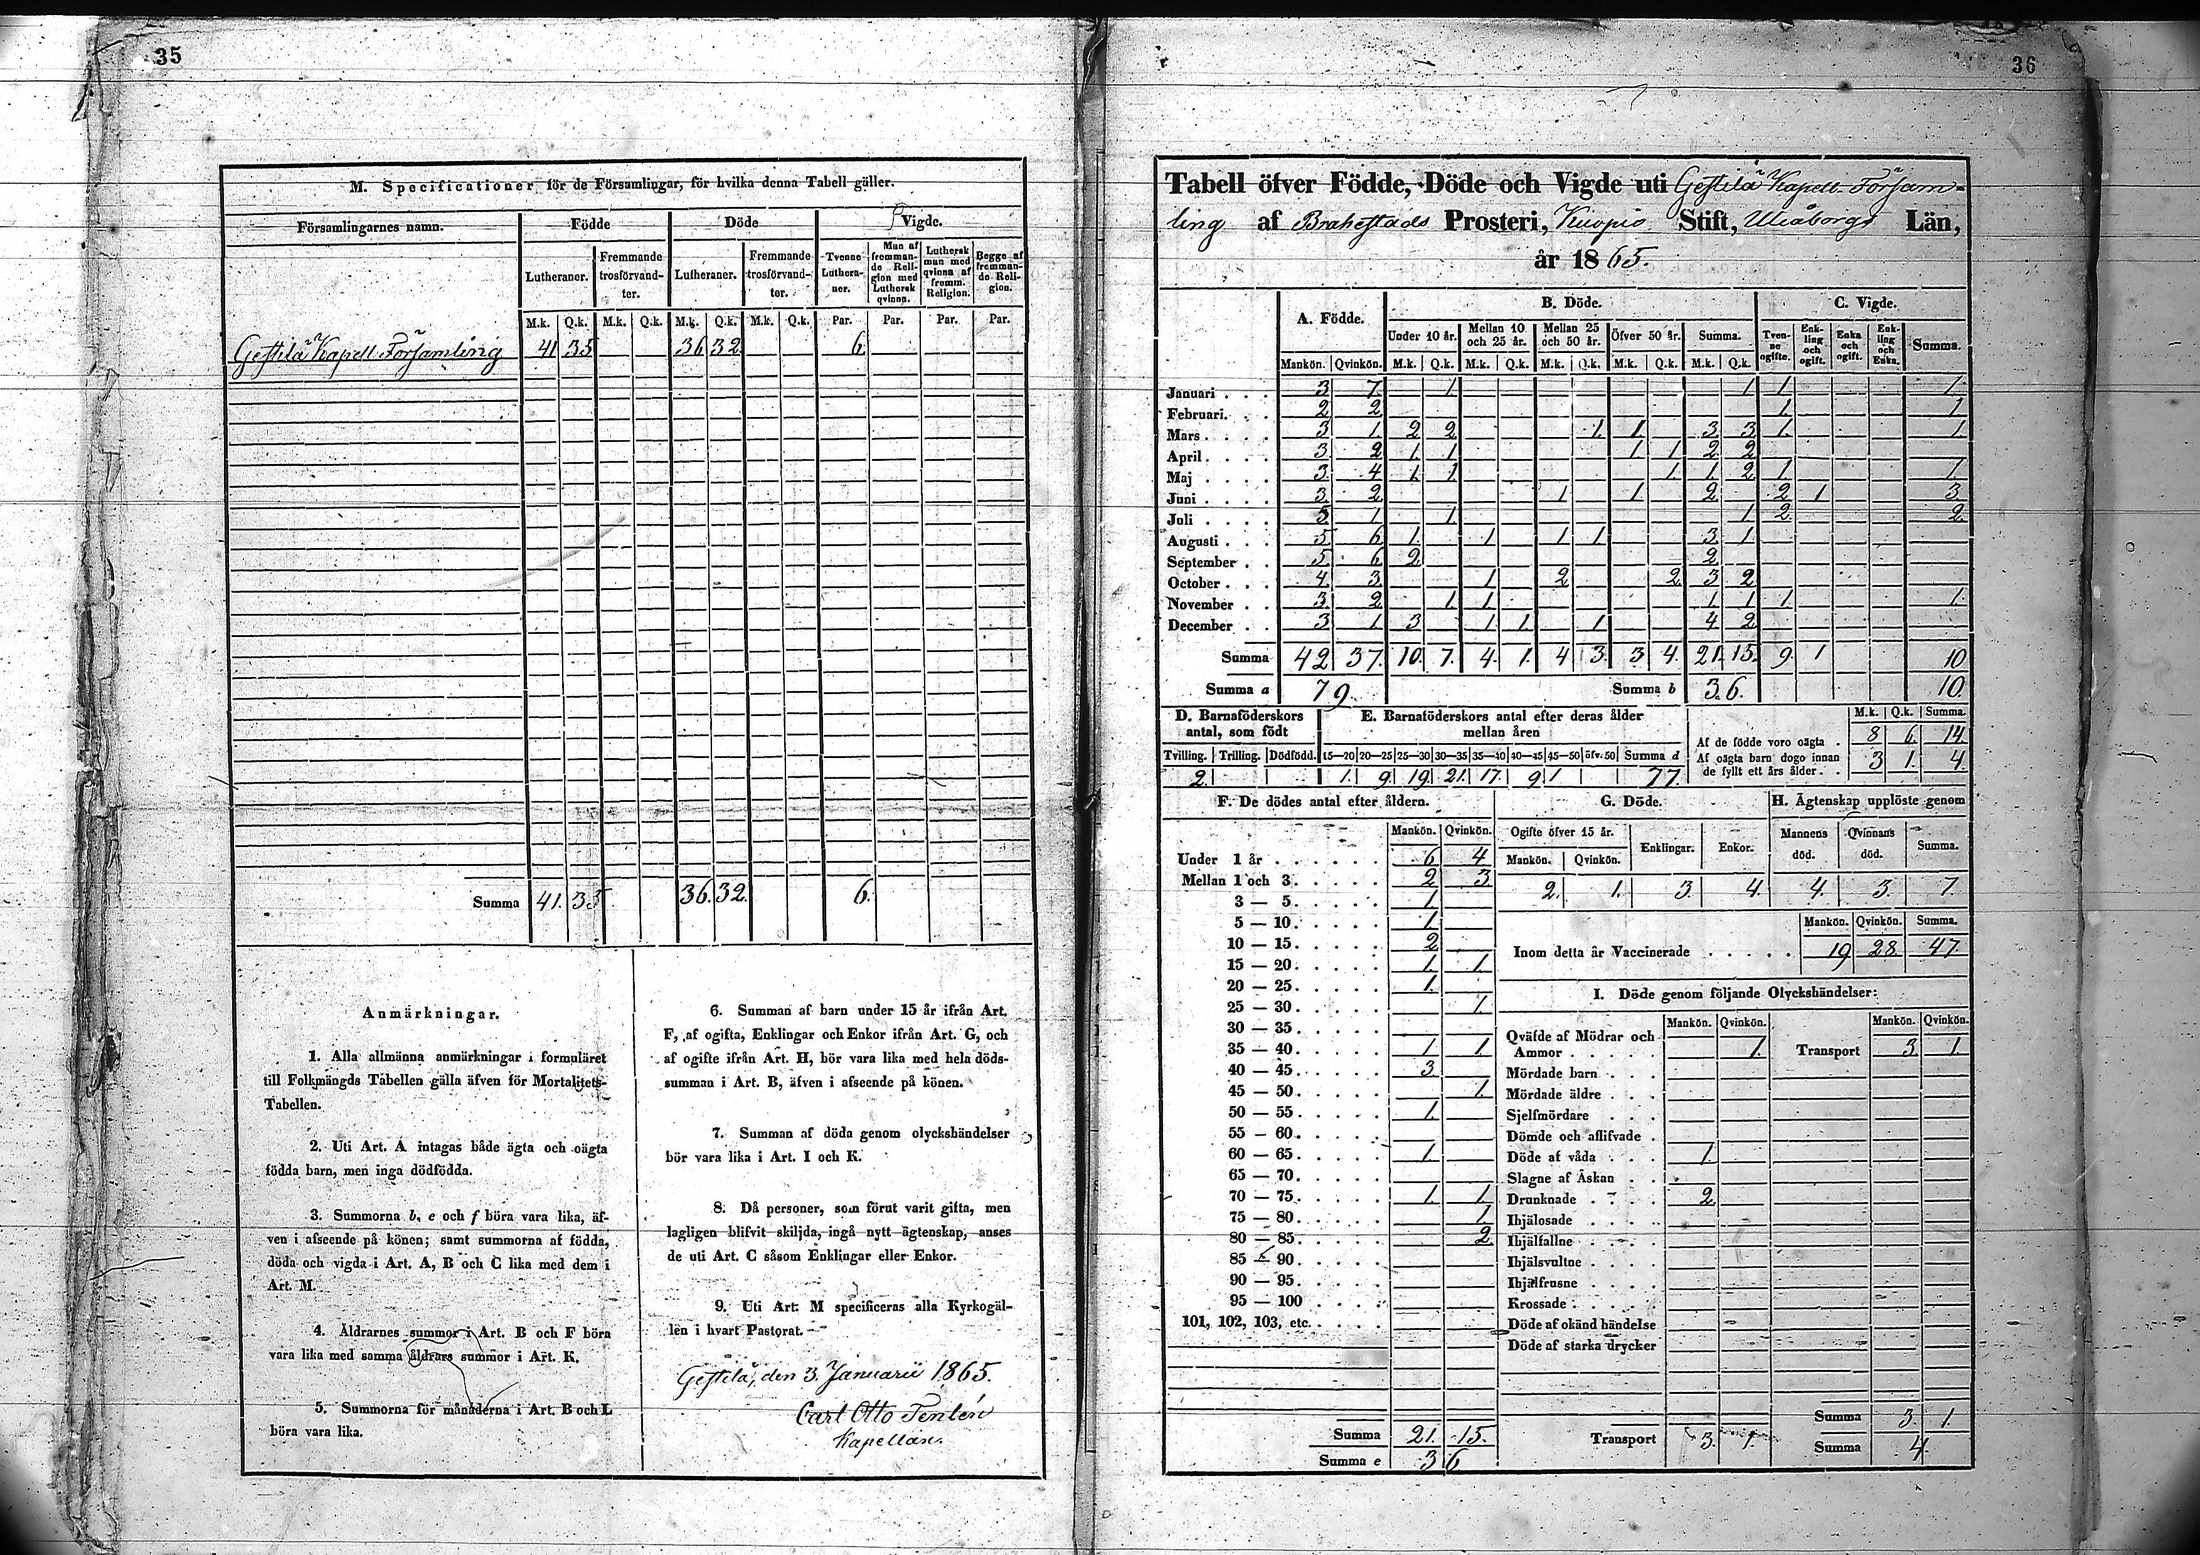 35
M. Specificationer för de Församlingar, för hvilka denna Tabell gäller.
Församlingarnes namn. Födde Döde Vigde.
Lutheraner. Fremmande trosförvandter. Lutheraner. Fremmande trosförvandter. Tvenne Lutheraner. Man af fremmande Religion med Luthersk qvinna. Luthersk man med qvinna af fremm. Religion. Begge af fremmande Religion.
M.k. Q.k. M.k. Q.k. M.k. Q.k. M.k. Q.k. Par. Par. Par. Par.
Gestilä Kapell Församling 41 35 36 32 6.
Summa 41. 35 36. 32. 6.
Anmärkningar.
1. Alla allmänna anmärkningar i formuläret
till Folkmängds Tabellen gälla äfven för Mortalitets-
Tabellen.
2. Uti Art. A intagas både ägta och oägta
födda barn, men inga dödfödda.
3. Summorna b, e och f böra vara lika, äf-
ven i afseende på könen; samt summorna af födda,
döda och vigda i Art. A, B och C lika med dem i
Art. M.
4. Åldrarnes summor i Art. B och F böra
vara lika med samma åldrars summor i Art. K.
5. Summorna för månaderna i Art. B och L
böra vara lika.
6. Summan af barn under 15 år ifrån Art.
F, af ogifta, Enklingar och Enkor ifrån Art. G, och
af ogifte ifrån Art. H, bör vara lika med hela döds-
summan i Art. B, äfven i afseende på könen.
7. Summan af döda genom olyckshändelser
bör vara lika i Art. I och K.
8. Då personer, som förut varit gifta, men
lagligen blifvit skiljda, ingå nytt ägtenskap, anses
de uti Art. C såsom Enklingar eller Enkor.
9. Uti Art. M specificeras alla Kyrkogäl-
len i hvart Pastorat.
Gestilä, den 3 Januarii 1865.
Carl Otto Tenlén
Kapellan.
36
Tabell öfver Födde, Döde och Vigde uti Gestilä Kapell Församling
ling af Brahestads Prosteri, Kuopio Stift, Uleåborgs Län,
år 1865.
A. Födde. B. Döde. C. Vigde.
Under 10 år. Mellan 10 och 25 år. Mellan 25 och 50 år. Öfver 50 år. Summa. Tvenne ogifte. Enkling och ogift. Enka och ogift. Enkling och Enka. Summa.
Mankön. Qvinkön. M.k. Q.k. M.k. Q.k. M.k. Q.k. M.k. Q.k. M.k. Q.k.
Januari 3 7. 1. 1 1. 1.
Februari. 2 2 1. 1
Mars 3 1. 2 2 1. 1. 3 3 1. 1.
April 3 2 1. 1 1 1 2 2
Maj 3. 4 1. 1 1. 1. 2 1 1
Juni 3 2 1 1 2 2 1 3
Juli 5 1. 1. 1 2. 2.
Augusti 5 6 1. 1 1 1 3 1
September 5. 6 2. 2
October 4. 3 1 2 2 3 2
November 3. 2 1 1 1. 1 1 1.
December 3 1 3 1 1. 1 4 2
Summa 42 37. 10. 7. 4. 1. 4 3. 3 4. 21. 15. 9. 1 10
Summa a 79. Summa b 36. 10.
D. Barnaföderskors antal, som födt
Tvilling. Trilling. Dödfödd.
2.
E. Barnaföderskors antal efter deras ålder mellan åren
15—20 20—25 25—30 30—35 35—40 40—45 45—50 öfv. 50 Summa d
1. 9. 19. 21. 17. 9 1 77.
M.k. Q.k. Summa.
Af de födde voro oägta 8 6. 14.
Af oägta barn dogo innan de fyllt ett års ålder 3 1. 4.
F. De dödes antal efter åldern.
Mankön. Qvinkön.
Under 1 år 6 4
Mellan 1 och 3. 2 3
3 — 5. 1
5 — 10. 1
10 — 15. 2
15 — 20. 1. 1
20 — 25. 1.
25 — 30. 1
30 — 35.
35 — 40. 1 1
40 — 45. 3
45 — 50. 1.
50 — 55. 1.
55 — 60.
60 — 65. 1.
65 — 70.
70 — 75. 1. 1
75 — 80. 1
80 — 85. 2
85 — 90.
90 — 95.
95 — 100
101, 102, 103, etc.
Summa 21. 15.
Summa e 36
G. Döde.
Ogifte öfver 15 år. Enklingar. Enkor.
Mankön. Qvinkön.
2. 1. 3. 4.
H. Ägtenskap upplöste genom
Mannens död. Qvinnans död. Summa.
4. 3. 7
Mankön. Qvinkön. Summa.
Inom detta år Vaccinerade 19 28. 47.
I. Döde genom följande Olyckshändelser:
Mankön. Qvinkön. Mankön. Qvinkön.
Qväfde af Mödrar och
Ammor 1. Transport 3. 1.
Mördade barn
Mördade äldre
Sjelfmördare
Dömde och aflifvade
Döde af våda 1
Slagne af Åskan
Drunknade 2
Ihjälosade
Ihjälfallne
Ihjälsvultne
Ihjälfrusne
Krossade
Döde af okänd händelse
Döde af starka drycker
Summa 3. 1.
Transport 3. 1. Summa 4.